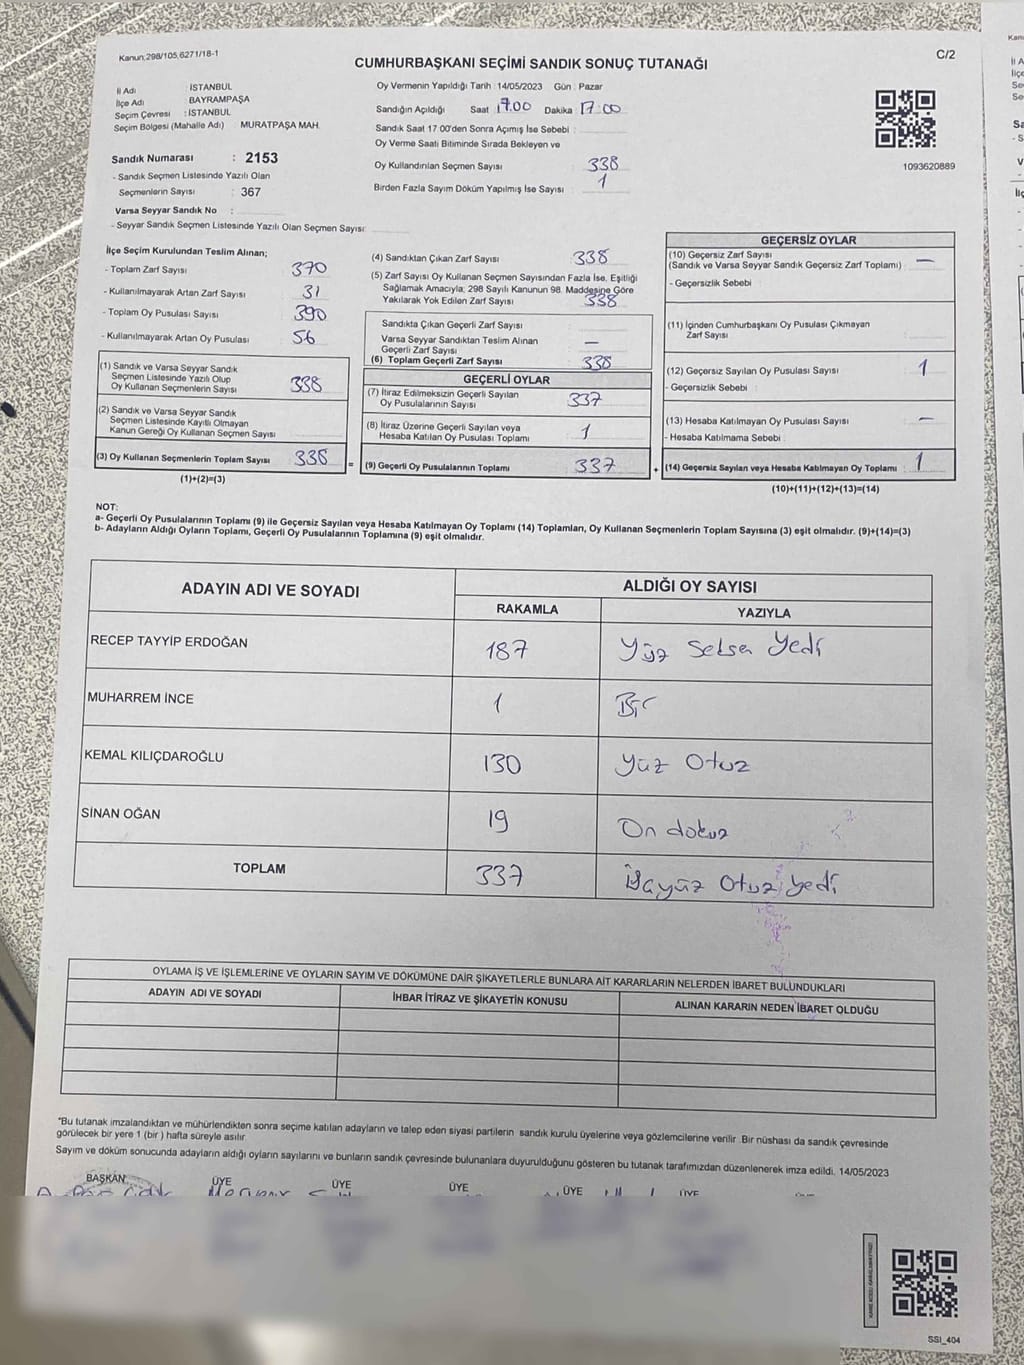 Kanun;298/105,6271/18-1
C/2
CUMHURBAŞKANI SEÇİMİ SANDIK SONUÇ TUTANAĞI
İl Adı : İSTANBUL
İlçe Adı : BAYRAMPAŞA
Seçim Çevresi : İSTANBUL
Seçim Bölgesi (Mahalle Adı) MURATPAŞA MAH.
Sandık Numarası : 2153
- Sandık Seçmen Listesinde Yazılı Olan
Seçmenlerin Sayısı : 367
Varsa Seyyar Sandık No :
- Seyyar Sandık Seçmen Listesinde Yazılı Olan Seçmen Sayısı:
Oy Vermenin Yapıldığı Tarih : 14/05/2023 Gün : Pazar
Sandığın Açıldığı Saat 17.00 Dakika 17:00
Sandık Saat 17:00'den Sonra Açımış İse Sebebi :
Oy Verme Saati Bitiminde Sırada Bekleyen ve
Oy Kullandırılan Seçmen Sayısı 338
Birden Fazla Sayım Döküm Yapılmış İse Sayısı 1
1093620889
İlçe Seçim Kurulundan Teslim Alınan;
- Toplam Zarf Sayısı 370
- Kullanılmayarak Artan Zarf Sayısı 31
- Toplam Oy Pusulası Sayısı 390
- Kullanılmayarak Artan Oy Pusulası 56
(1) Sandık ve Varsa Seyyar Sandık
Seçmen Listesinde Yazılı Olup
Oy Kullanan Seçmenlerin Sayısı 338
(2) Sandık ve Varsa Seyyar Sandık
Seçmen Listesinde Kayıtlı Olmayan
Kanun Gereği Oy Kullanan Seçmen Sayısı
(3) Oy Kullanan Seçmenlerin Toplam Sayısı 338
(1)+(2)=(3)
=
(4) Sandıktan Çıkan Zarf Sayısı 338
(5) Zarf Sayısı Oy Kullanan Seçmen Sayısından Fazla İse, Eşitliği
Sağlamak Amacıyla; 298 Sayılı Kanunun 98. Maddesine Göre
Yakılarak Yok Edilen Zarf Sayısı 338
Sandıkta Çıkan Geçerli Zarf Sayısı
Varsa Seyyar Sandıktan Teslim Alınan
Geçerli Zarf Sayısı —
(6) Toplam Geçerli Zarf Sayısı 338
GEÇERLİ OYLAR
(7) İtiraz Edilmeksizin Geçerli Sayılan
Oy Pusulalarının Sayısı 337
(8) İtiraz Üzerine Geçerli Sayılan veya
Hesaba Katılan Oy Pusulası Toplamı 1
(9) Geçerli Oy Pusulalarının Toplamı 337
+
GEÇERSİZ OYLAR
(10) Geçersiz Zarf Sayısı —
(Sandık ve Varsa Seyyar Sandık Geçersiz Zarf Toplamı)
- Geçersizlik Sebebi :
(11) İçinden Cumhurbaşkanı Oy Pusulası Çıkmayan
Zarf Sayısı
(12) Geçersiz Sayılan Oy Pusulası Sayısı 1
- Geçersizlik Sebebi :
(13) Hesaba Katılmayan Oy Pusulası Sayısı —
- Hesaba Katılmama Sebebi :
(14) Geçersiz Sayılan veya Hesaba Katılmayan Oy Toplamı 1
(10)+(11)+(12)+(13)=(14)
NOT:
a- Geçerli Oy Pusulalarının Toplamı (9) ile Geçersiz Sayılan veya Hesaba Katılmayan Oy Toplamı (14) Toplamları, Oy Kullanan Seçmenlerin Toplam Sayısına (3) eşit olmalıdır. (9)+(14)=(3)
b- Adayların Aldığı Oyların Toplamı, Geçerli Oy Pusulalarının Toplamına (9) eşit olmalıdır.
ADAYIN ADI VE SOYADI ALDIĞI OY SAYISI
RAKAMLA YAZIYLA
RECEP TAYYİP ERDOĞAN 187 Yüz Seksen Yedi
MUHARREM İNCE 1 Bir
KEMAL KILIÇDAROĞLU 130 Yüz Otuz
SİNAN OĞAN 19 On dokuz
TOPLAM 337 Üçyüz Otuz yedi
OYLAMA İŞ VE İŞLEMLERİNE VE OYLARIN SAYIM VE DÖKÜMÜNE DAİR ŞİKAYETLERLE BUNLARA AİT KARARLARIN NELERDEN İBARET BULUNDUKLARI
ADAYIN ADI VE SOYADI İHBAR İTİRAZ VE ŞİKAYETİN KONUSU ALINAN KARARIN NEDEN İBARET OLDUĞU
"Bu tutanak imzalandıktan ve mühürlendikten sonra seçime katılan adayların ve talep eden siyasi partilerin sandık kurulu üyelerine veya gözlemcilerine verilir .Bir nüshası da sandık çevresinde
görülecek bir yere 1 (bir ) hafta süreyle asılır.
Sayım ve döküm sonucunda adayların aldığı oyların sayılarını ve bunların sandık çevresinde bulunanlara duyurulduğunu gösteren bu tutanak tarafımızdan düzenlenerek imza edildi. 14/05/2023
BAŞKAN ÜYE ÜYE ÜYE ÜYE ÜYE
SSI_404